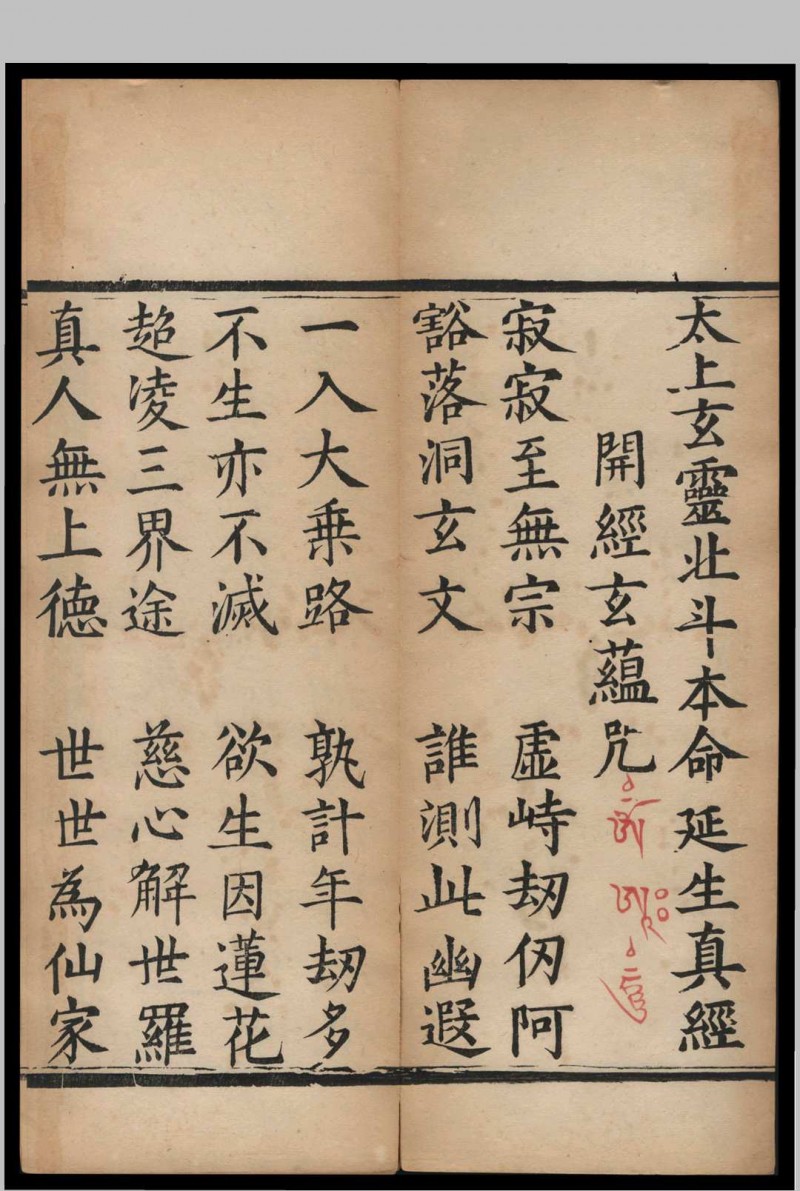 太上玄靈北斗本命延生真經
開經玄蘊咒
寂寂至無宗 虛峙劫仞阿
豁落洞玄文 誰測此幽遐
一入大乘路 孰計年劫多
不生亦不滅 欲生因蓮花
超凌三界途 慈心解世羅
真人無上德 世世為仙家